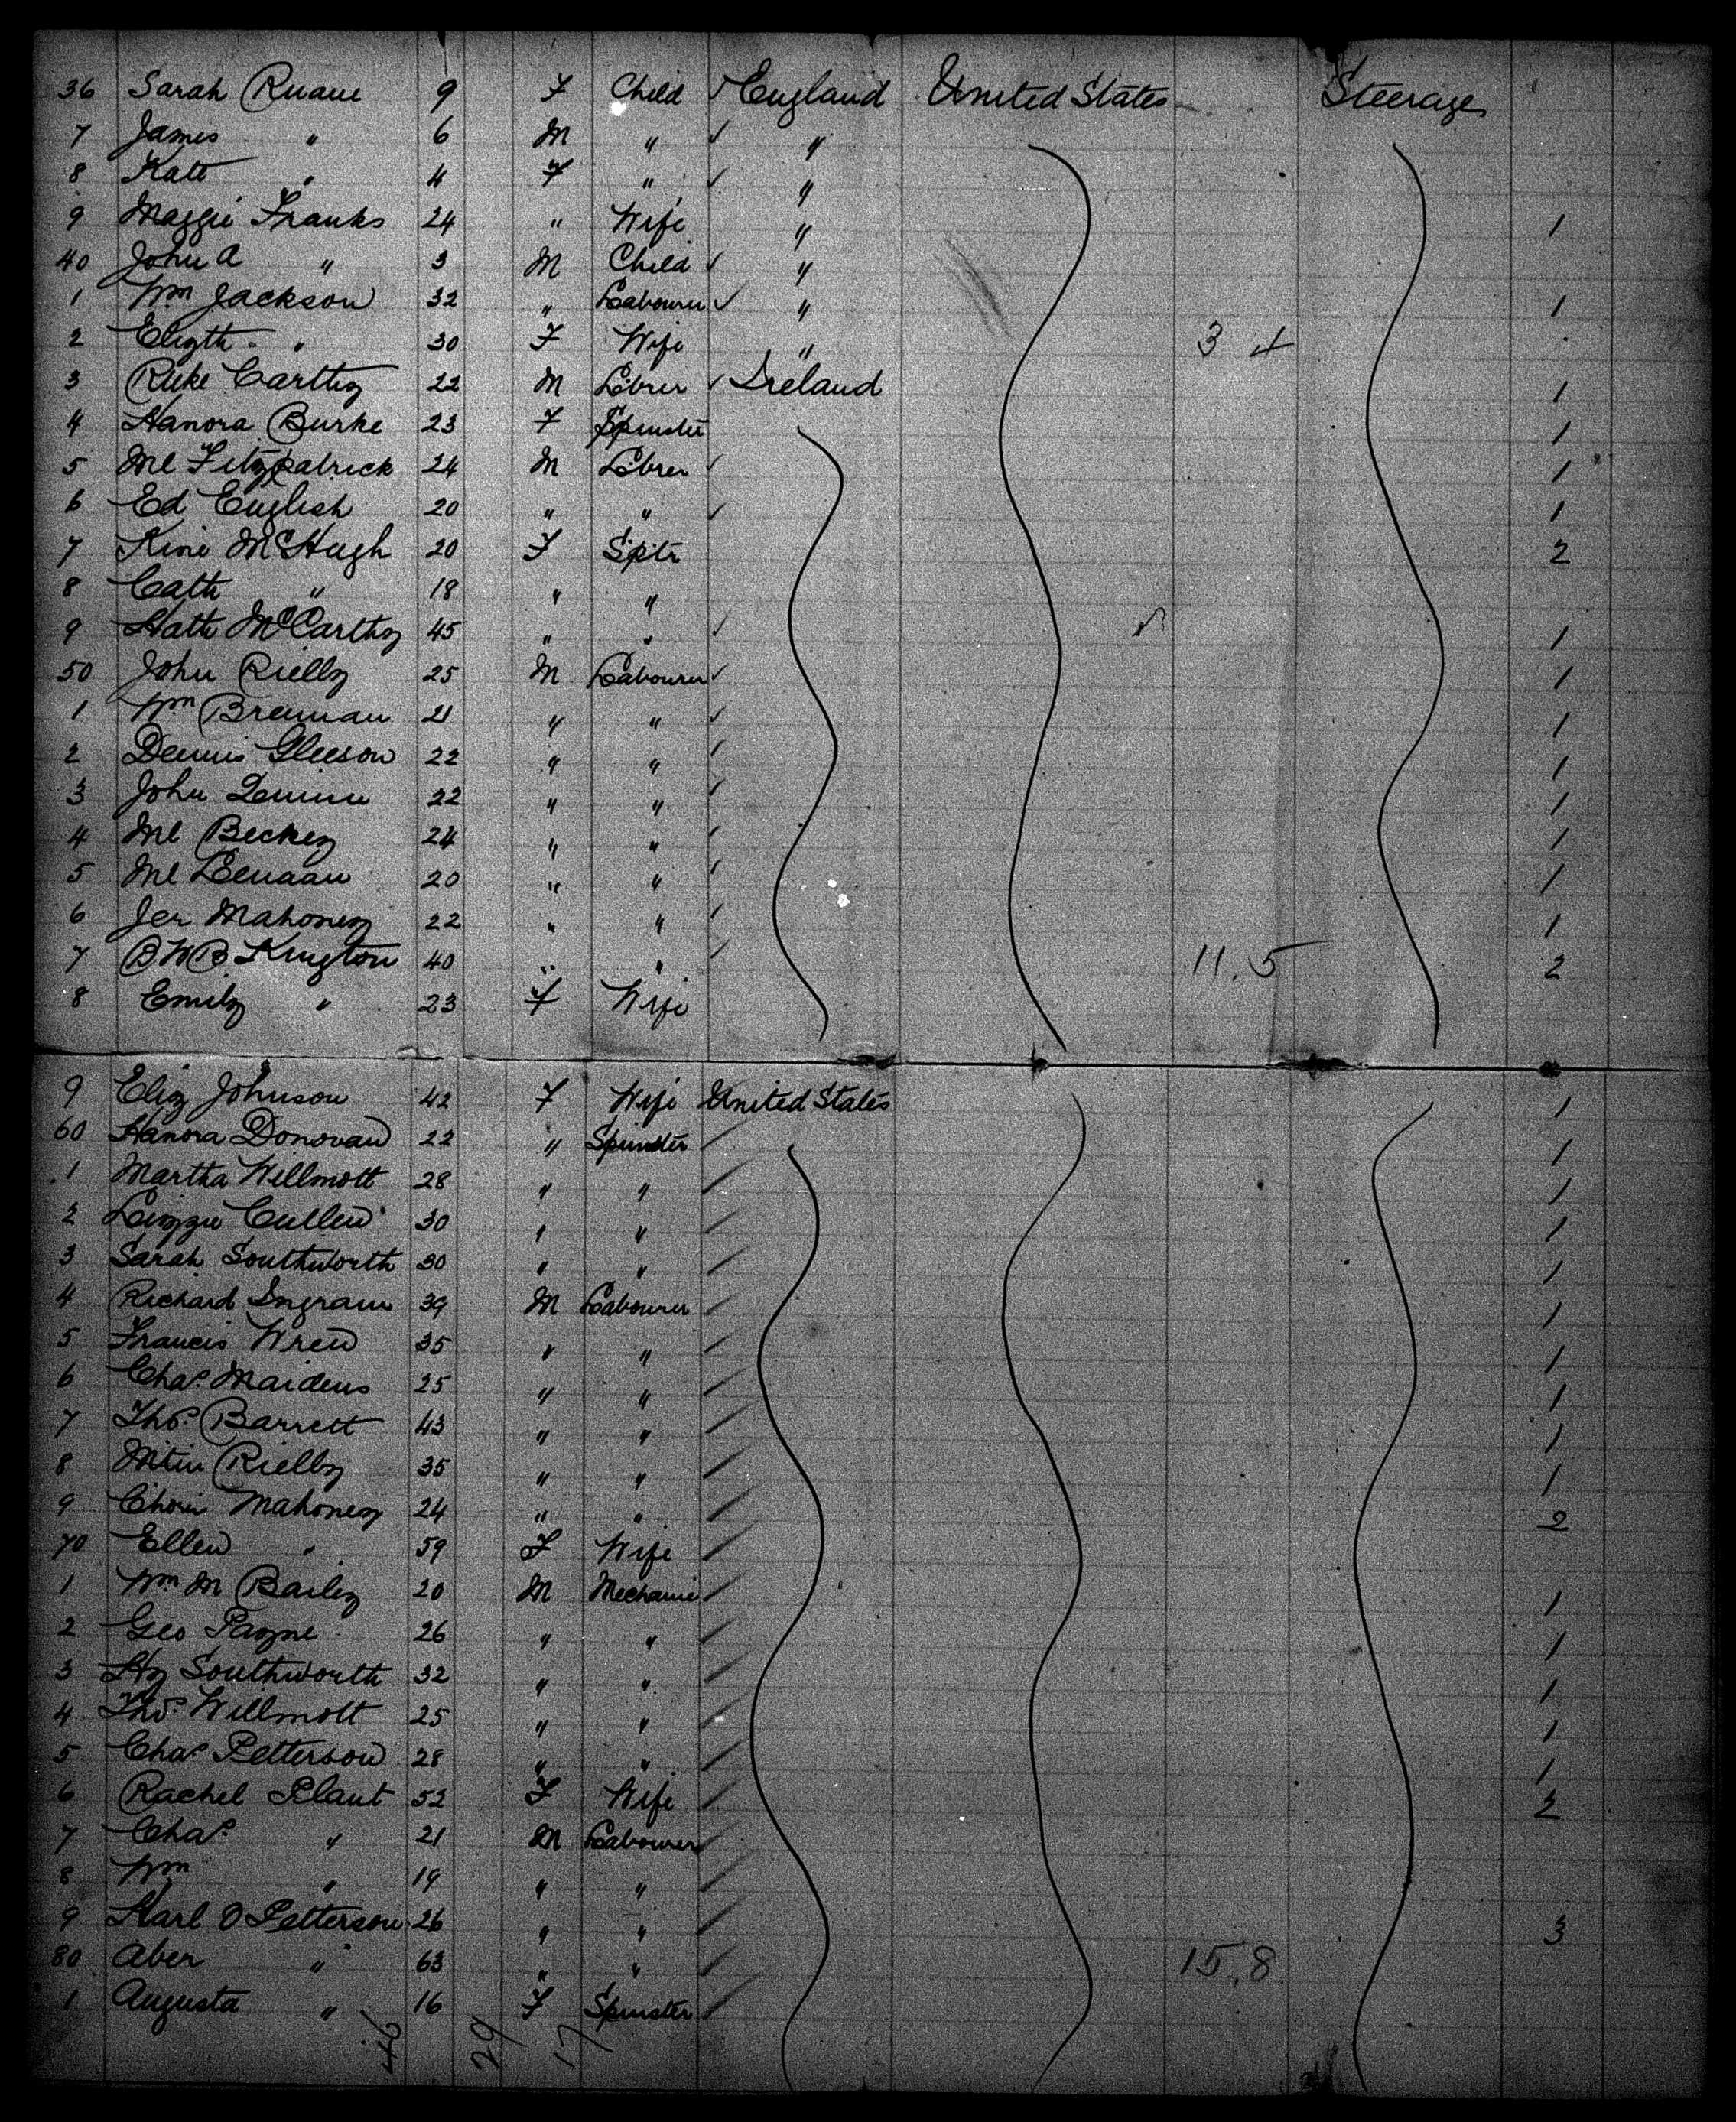 36 Sarah Ruane 9 F Child ✓ England United States Steerage
7 James " 6 M " ✓ "
8 Kate " 4 F " ✓ "
9 Maggie Franks 24 " Wife " 1
40 John A " 3 M Child ✓ "
1 Wm Jackson 32 " Labourer ✓ " 1
2 Elizth " 30 F Wife " 3 4
3 Rich Carthy 22 M Lbrer ✓ Ireland 1
4 Hanora Burke 23 F Spinster 1
5 Ml Fitzpatrick 24 M Lbrer ✓ 1
6 Ed English 20 " " ✓ 1
7 McHugh 20 F Sptr 2
8 Cath " 18 " "
9 Kath McCarthy 45 " " ✓ 1
50 John Rielly 25 M Labourer ✓ 1
1 Wm Brennan 21 " " ✓ 1
2 Dennis Gleeson 22 " " ✓ 1
3 John 22 " " ✓ 1
4 Ml Beckey 24 " " ✓ 1
5 Ml Lenaan 20 " " ✓ 1
6 Jer Mahoney 22 " " ✓ 1
7 B W B Kington 40 " " ✓ 11.5 2
8 Emily " 23 F Wife
9 Eliz Johnson 42 F Wife United States 1
60 Hanora Donovan 22 " Spinster 1
1 Martha Willmott 28 " " 1
2 Lizzie Cullen 30 " " 1
3 Sarah Southworth 30 " " 1
4 Richard Ingram 39 M Labourer 1
5 Francis Wren 35 " " 1
6 Chas. Maidens 25 " " 1
7 Thos. Barrett 43 " " 1
8 Mtin Rielly 35 " " 1
9 Mahoney 24 " " 2
70 Ellen " 59 F Wife
1 Wm M Bailey 20 M Mechanic 1
2 Geo Payne 26 " " 1
3 Hy Southworth 32 " " 1
4 Thos. Willmott 25 " " 1
5 Chas Petterson 28 " " 1
6 Rachel Plant 52 F Wife 3
7 Chas. " 21 M Labourer
8 Wm " 19 " "
9 Karl O Petterson 26 " " 3
80 Aber " 63 " " 15.8
1 Augusta " 16 F Spinster
46 29 17